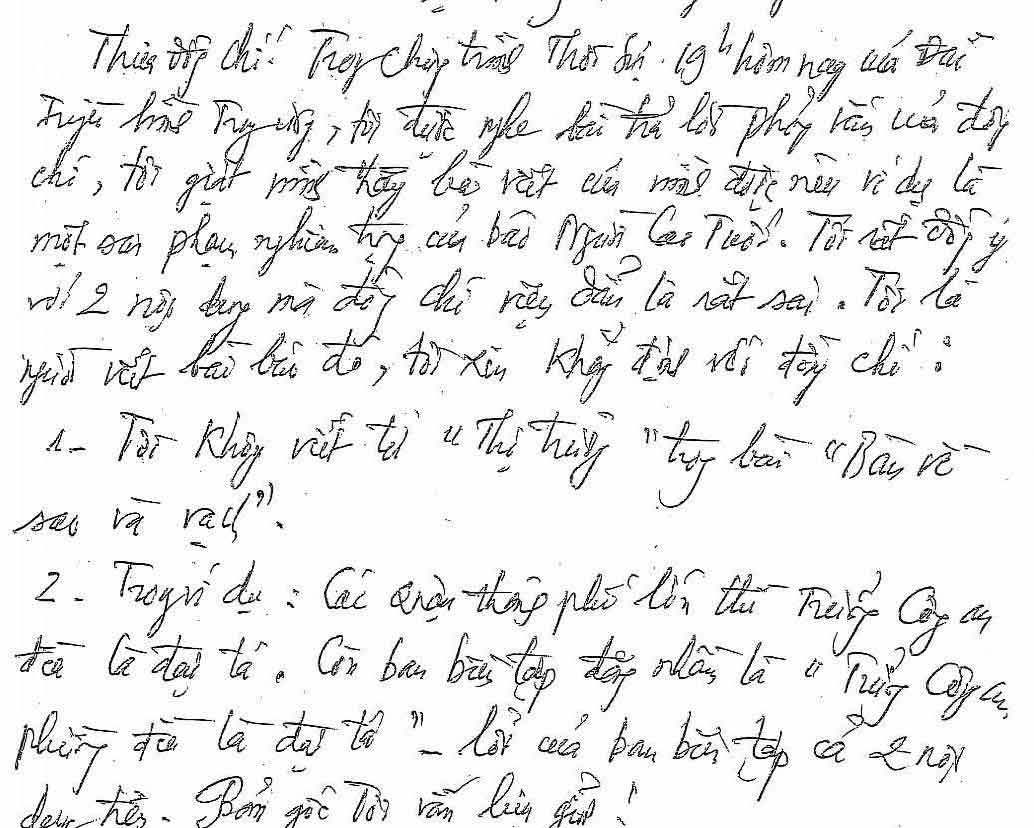 Thưa đồng chí! Trong chương trình Thời sự 19h hôm nay của Đài
Truyền hình Trung ương, tôi được nghe bài trả lời phỏng vấn của đồng
chí, tôi giật mình thấy bài viết của mình được nêu ví dụ là
một sai phạm nghiêm trọng của báo Người Cao Tuổi. Tôi rất đồng ý
với 2 nội dung mà đồng chí viện dẫn là rất sai. Tôi là
người viết bài báo đó, tôi xin khẳng định với đồng chí:
1- Tôi không viết từ "Thị trường" trong bài "Bàn về
sao và vạch".
2- Trong ví dụ: Các quận thành phố lớn thì Trưởng Công an
đều là đại tá. Còn ban biên tập đăng nhầm là "Trưởng Công an
phường đều là đại tá" - lỗi của ban biên tập cả 2 nội
dung trên. Bản gốc tôi vẫn lưu giữ!